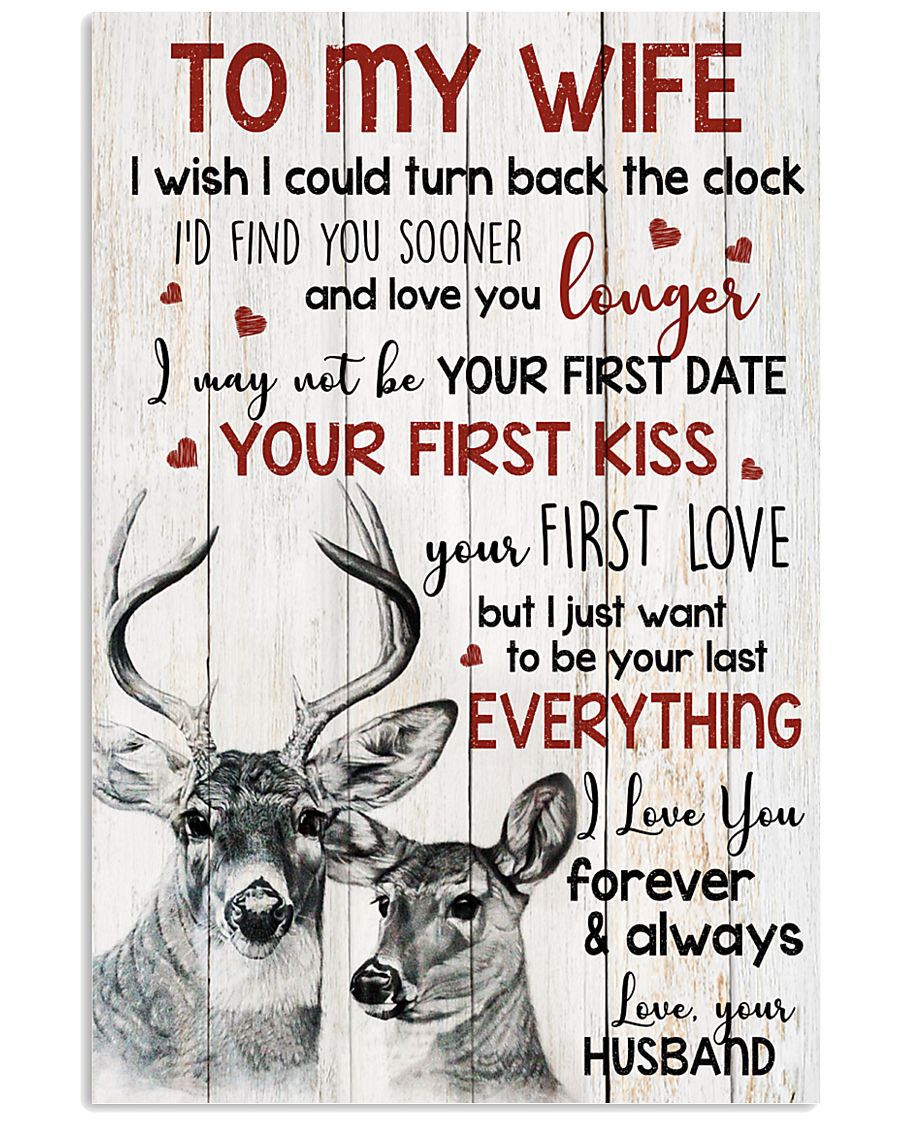 TO MY WIFE
I wish I could turn back the clock
I'D FIND YOU SOONER
and love you longer
I may not be YOUR FIRST DATE
YOUR FIRST KISS
your FIRST LOVE
but I just want
to be your last
EVERYTHING
I Love You
forever
& always
Love, your
HUSBAND